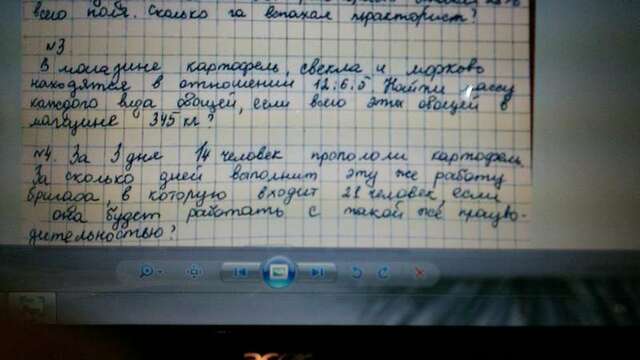 всего поля. Сколько га вспахал тракторист?
№3.
В магазине картофель, свекла и морковь
находятся в отношении 12:6:5. Найти массу
каждого вида овощей, если всего этих овощей в
магазине 345 кг?
№4. За 3 дня 14 человек пропололи картофель.
За сколько дней выполнит эту же работу
бригада, в которую входит 21 человек, если
она будет работать с такой же произво-
дительностью?